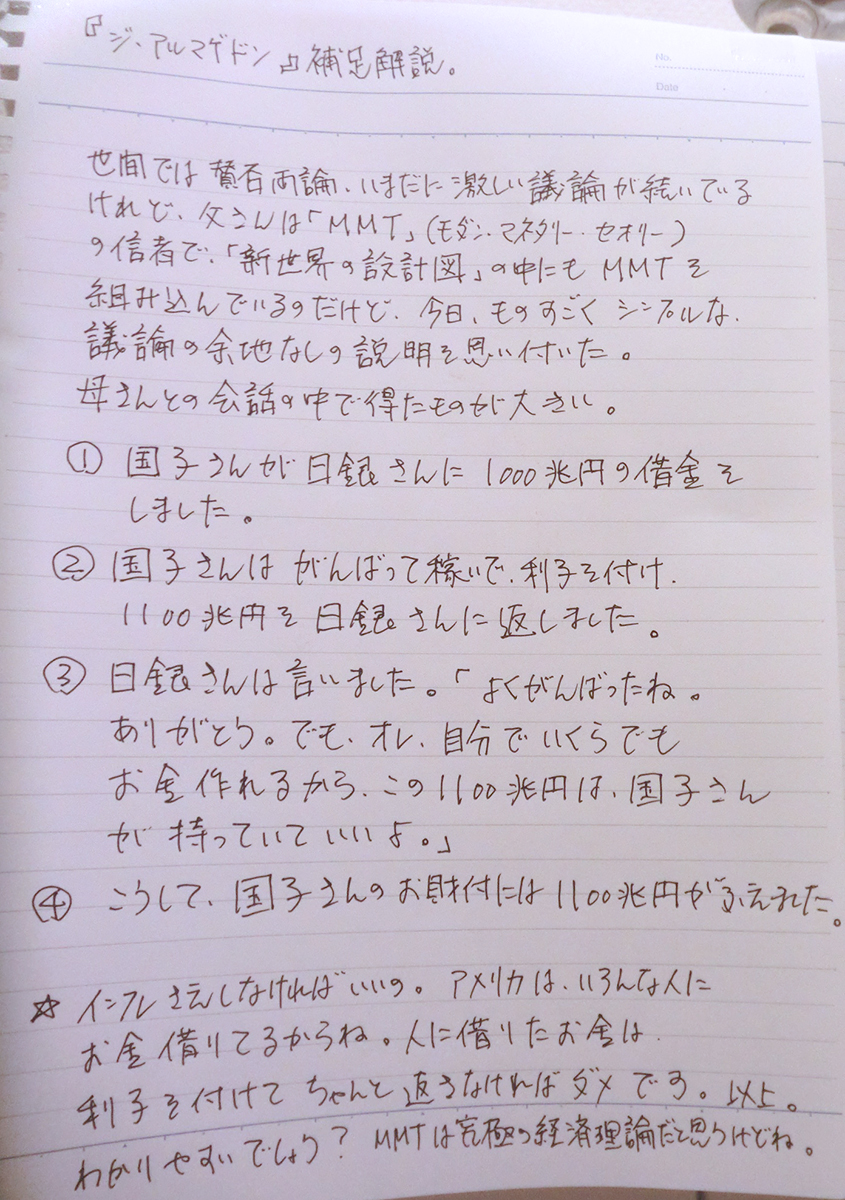 『ジ・アルマゲドン』補足解説。
No.
Date
世間では賛否両論、いまだに激しい議論が続いている
けれど、父さんは「MMT」(モダン・マネタリー・セオリー)
の信者で、「新世界の設計図」の中にもMMTを
組み込んでいるのだけど、今日、ものすごくシンプルな、
議論の余地なしの説明を思い付いた。
母さんとの会話の中で得たものが大きい。
① 国子さんが日銀さんに1000兆円の借金を
しました。
② 国子さんはがんばって稼いで、利子を付け、
1100兆円を日銀さんに返しました。
③ 日銀さんは言いました。「よくがんばったね。
ありがとう。でも、オレ、自分でいくらでも
お金作れるから、この1100兆円は、国子さん
が持っていていいよ。」
④ こうして、国子さんのお財付には1100兆円がふえました。
☆ インフレさえしなければいいの。アメリカは、いろんな人に
お金借りてるからね。人に借りたお金は、
利子を付けてちゃんと返さなければダメです。以上。
わかりやすいでしょう? MMTは究極の経済理論だと思うけどね。